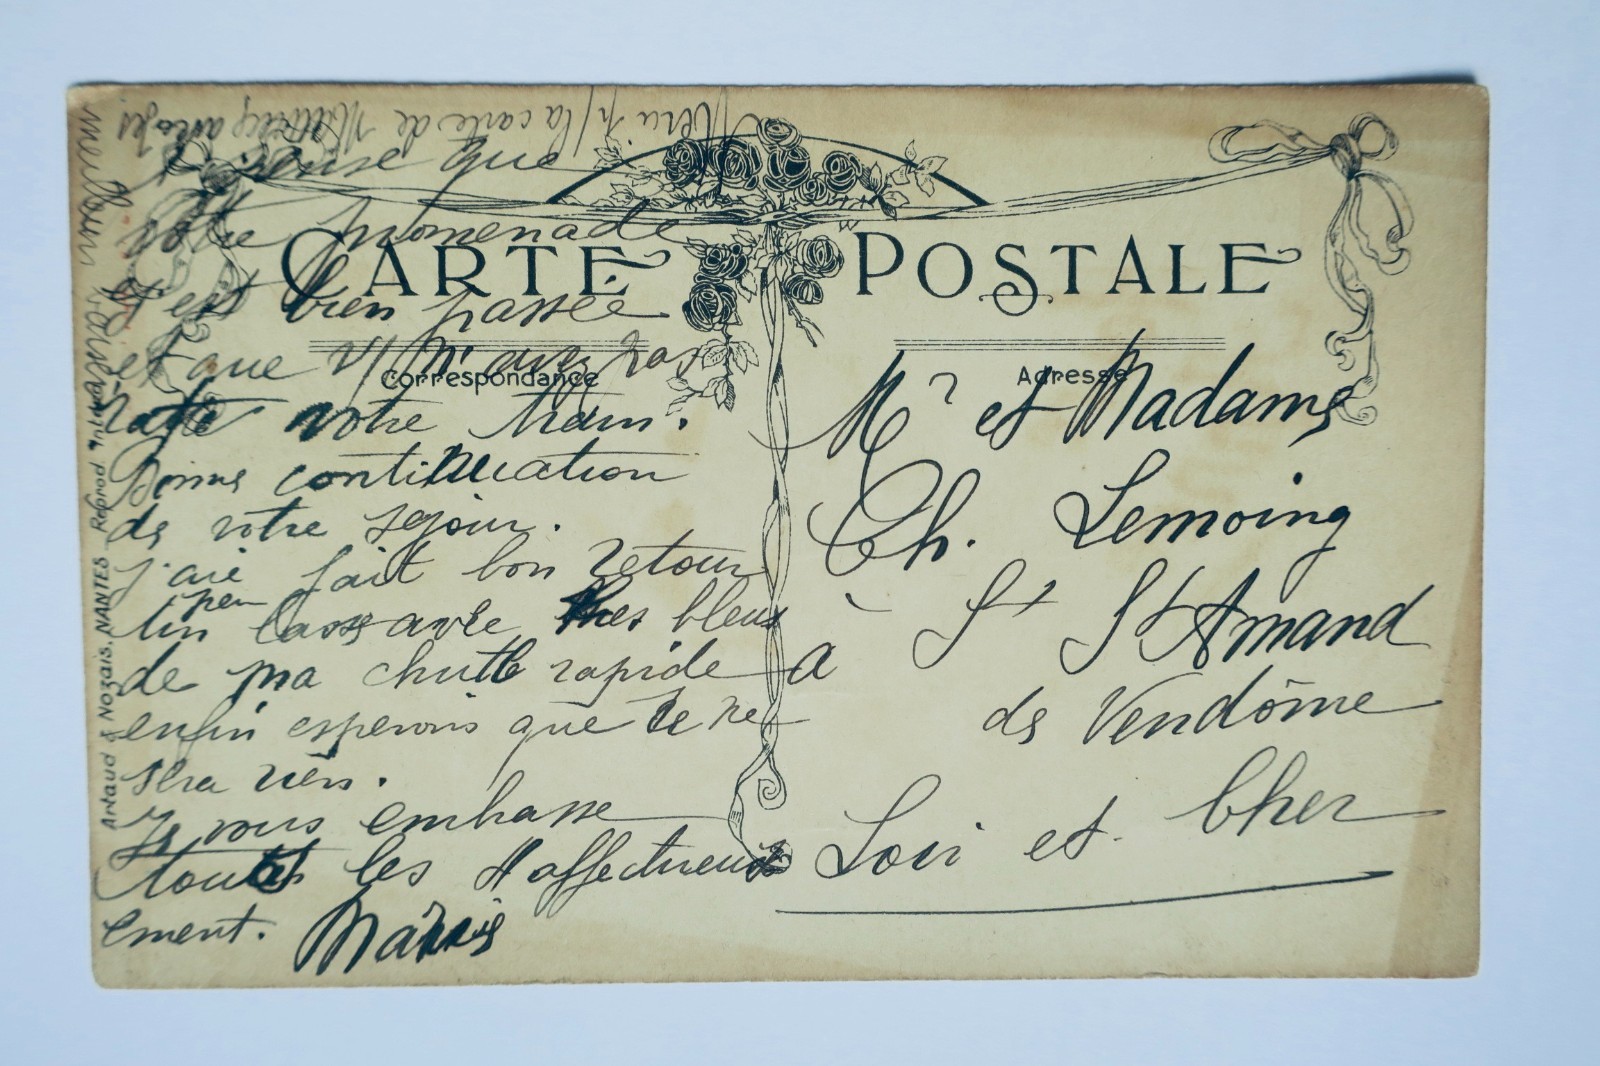 CARTE POSTALE
Correspondance
Adresse
pense que
votre promenade
s'est bien passée
et que v/ n'avez pas
raté votre train.
Bonne continuation
de votre séjour.
J'aie fait bon retour
un peu lasse avec des bleus
de ma chute rapide
enfin esperons que ce ne
sera rien.
Je vous embrasse
toutes les 4 affectueus
ement.
Merci p/ la carte de
M r et Madame
Ch. Lemoing
à St St Amand
de Vendôme
Loir et Cher
Artaud & Nozais, NANTES - Reprod. Interd.